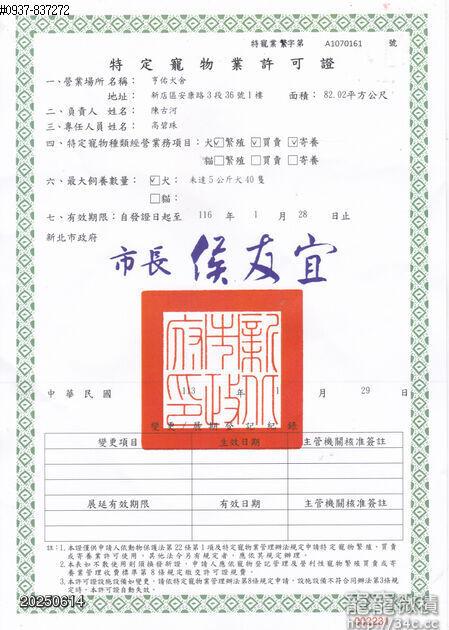 #0937-837272
特寵業繁字第 A1070161 號
特定寵物業許可證
一、營業場所名稱： 亨佑犬舍
地址： 新店區安康路3段36號1樓 面積： 82.02平方公尺
二、負責人姓名： 陳古河
三、專任人員姓名： 高碧珠
四、特定寵物種類經營業務項目：犬☑繁殖 ☑買賣 ☑寄養
貓□繁殖 □買賣 □寄養
六、最大飼養數量： ☑犬： 未達5公斤犬40隻
□貓：
七、有效期限：自發證日起至 116 年 1 月 28 日止
新北市政府
市長 侯友宜
新北市政府印
中華民國 113 年 1 月 29 日
變更/展期登記紀錄
變更項目 生效日期 主管機關核准簽註
展延有效期限 有效日期 主管機關核准簽註
註：1.本證僅供申請人依動物保護法第22條第1項及特定寵物業管理辦法規定申請特定寵物繁殖、買賣
或寄養業許可使用，其他法令另有規定者，應依其規定辦理。
2.本表如不敷使用則須換發新證，申請人應依寵物登記管理及營利性寵物繁殖買賣或寄養
業管理收費標準第8條規定繳交許可證規費。
3.本許可證設施設備如變更，請依特定寵物業管理辦法第8條規定申請，設施設備不符合同辦法第3條規
定時，本許可證自動失效。
20250614
002231
龍龍微積
http://34c.cc